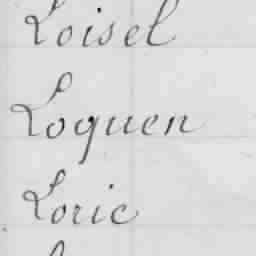 Loisel
Loquen
Loric